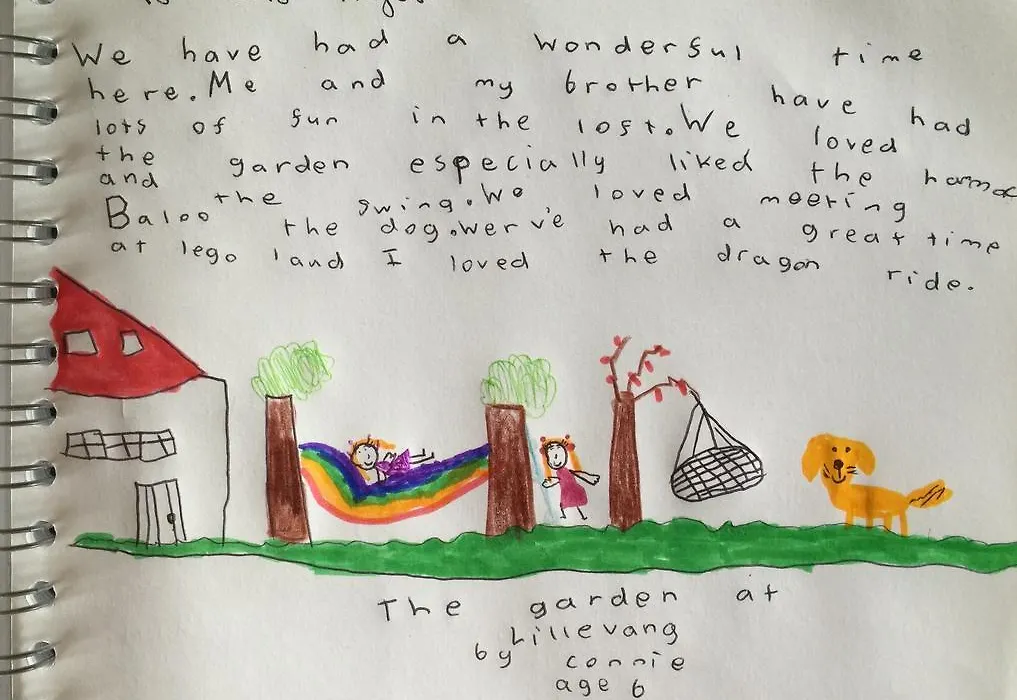 We have had a wonderful time
here. Me and my brother have had
lots of fun in the lost. We loved
the garden especially liked the hamac
and the swing. We loved meeting
Baloo the dog. wer've had a great time
at lego land I loved the dragon ride.
The garden at
Lillevang
by connie
age 6